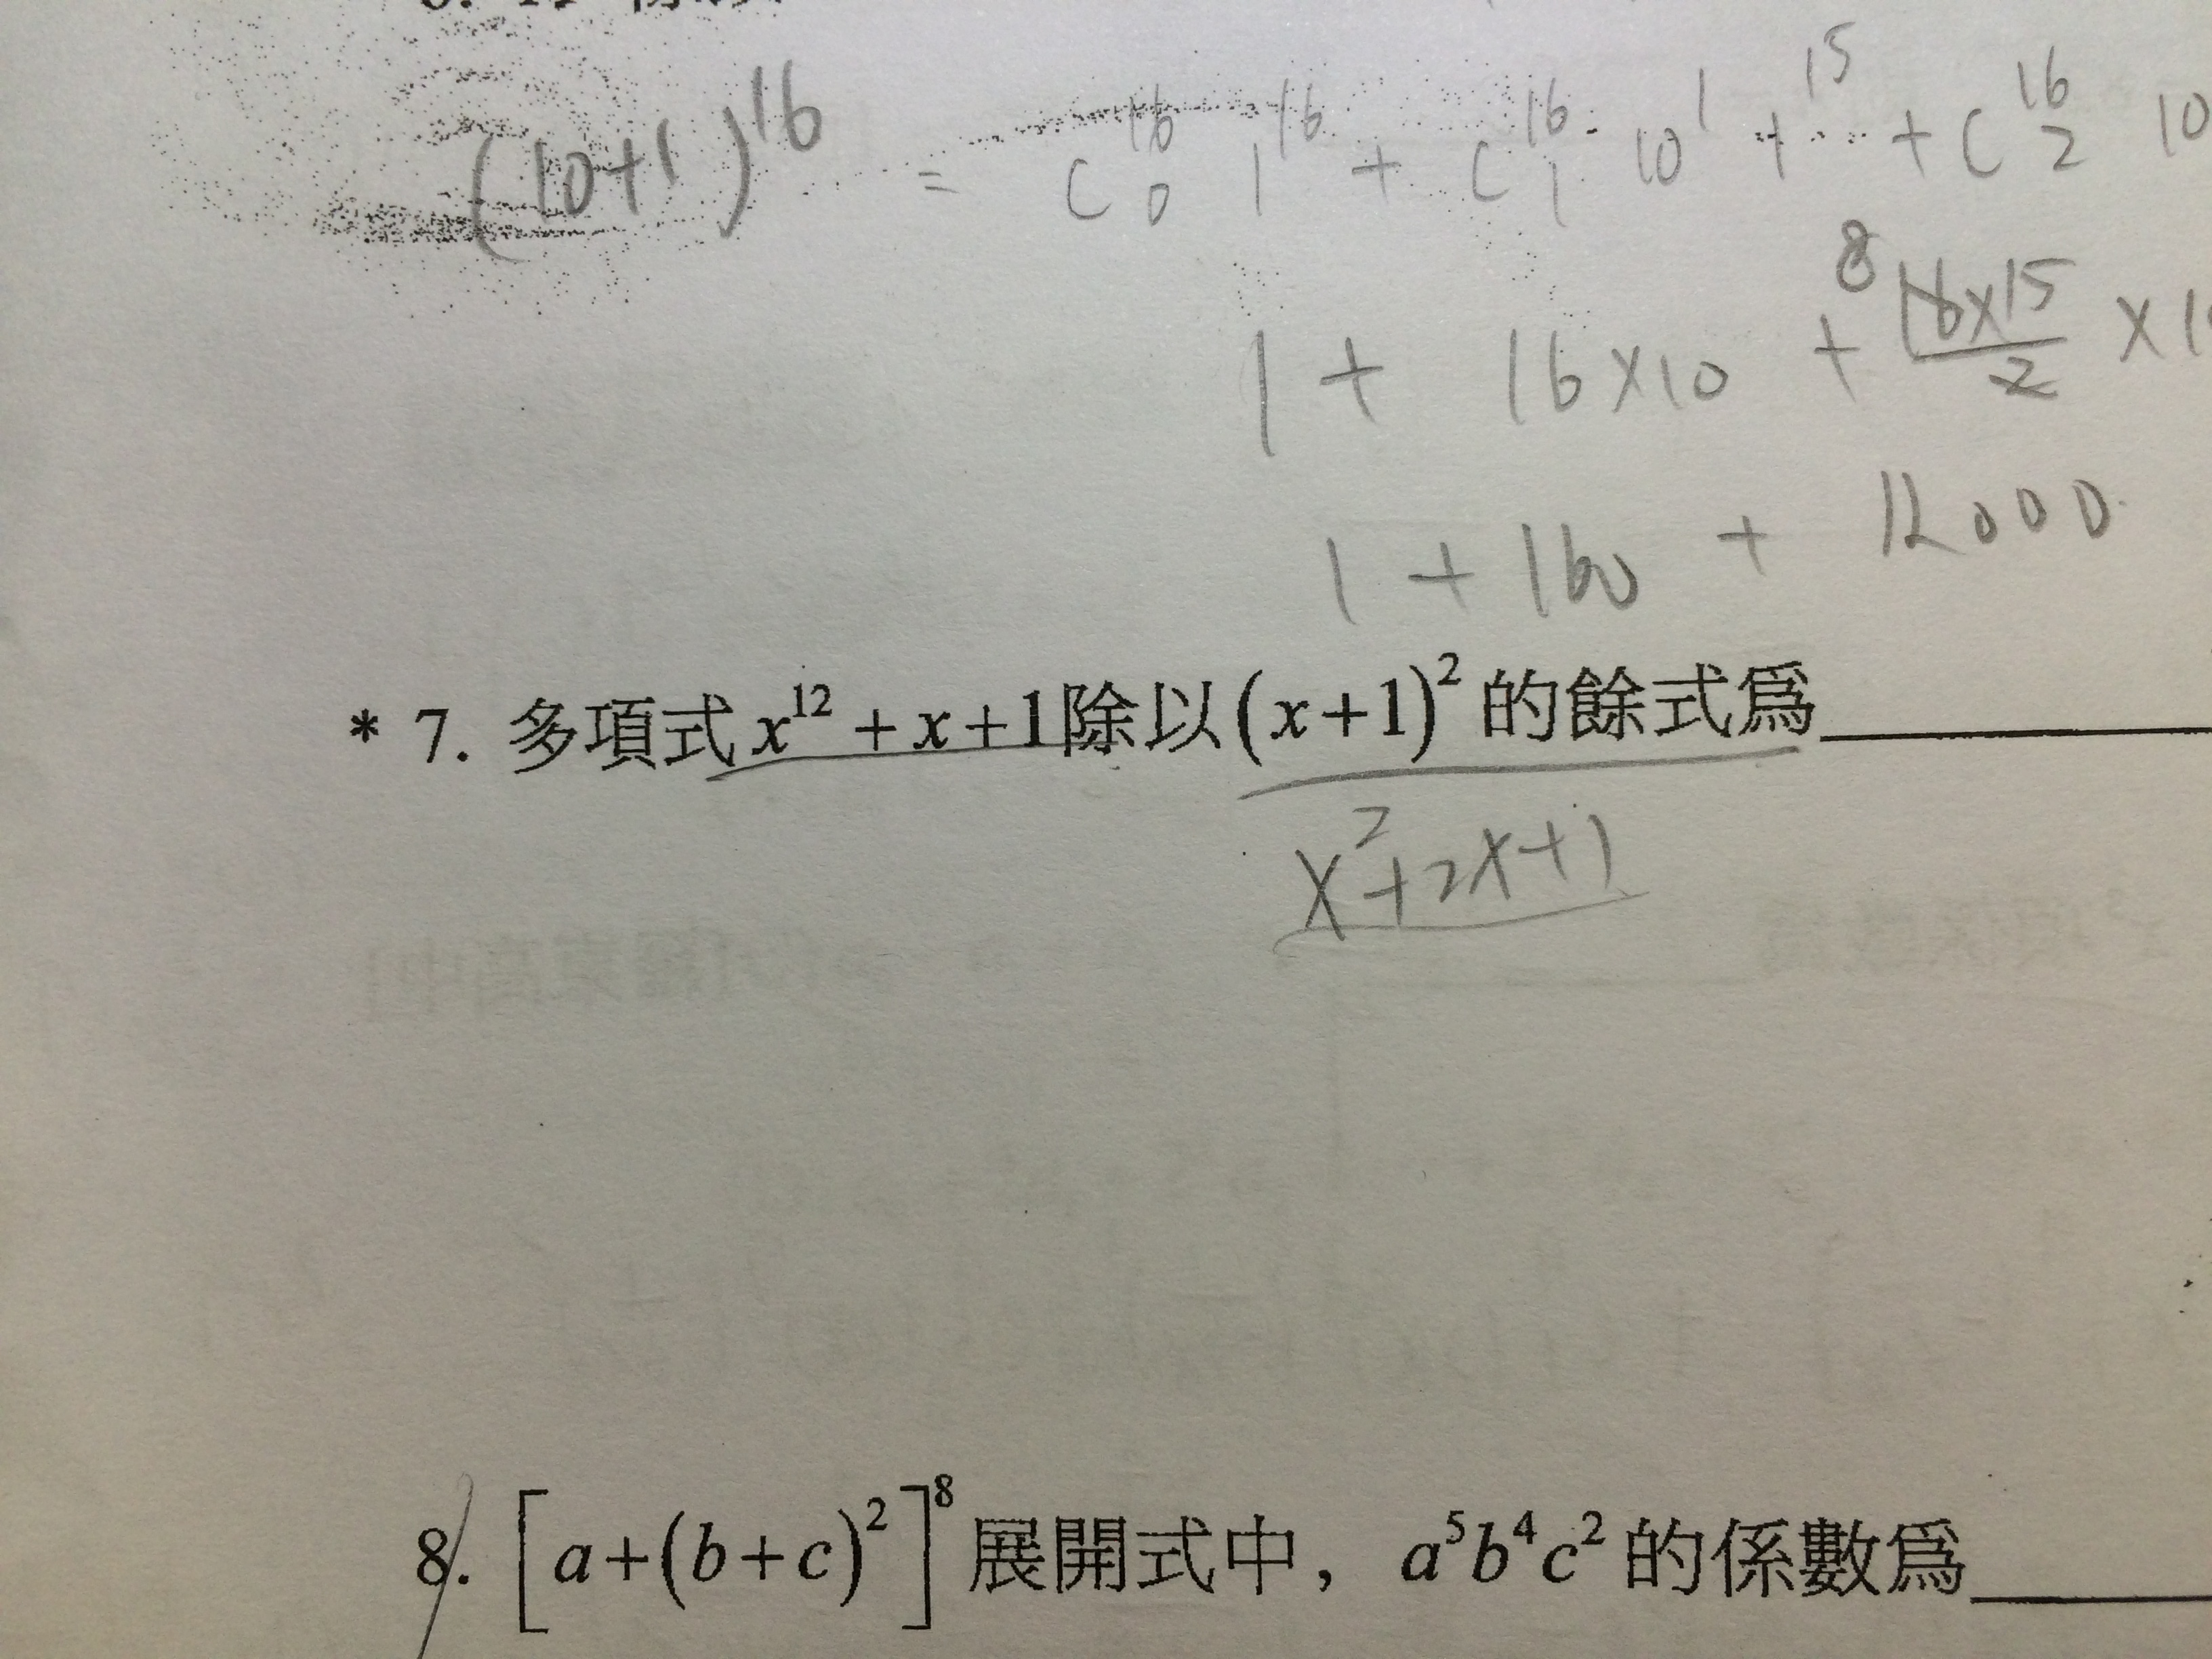 (10+1)^16 = C^16_0 1^16 + C^16_1 · 10^1 1^15 + ... + C^16_2 10
1 + 16×10 + 8 16×15/2 ×1
1 + 160 + 12000
* 7. 多項式 x^12 + x + 1 除以 (x+1)^2 的餘式為______
x^2+2x+1
8. [a+(b+c)^2]^8 展開式中，a^5b^4c^2 的係數為______